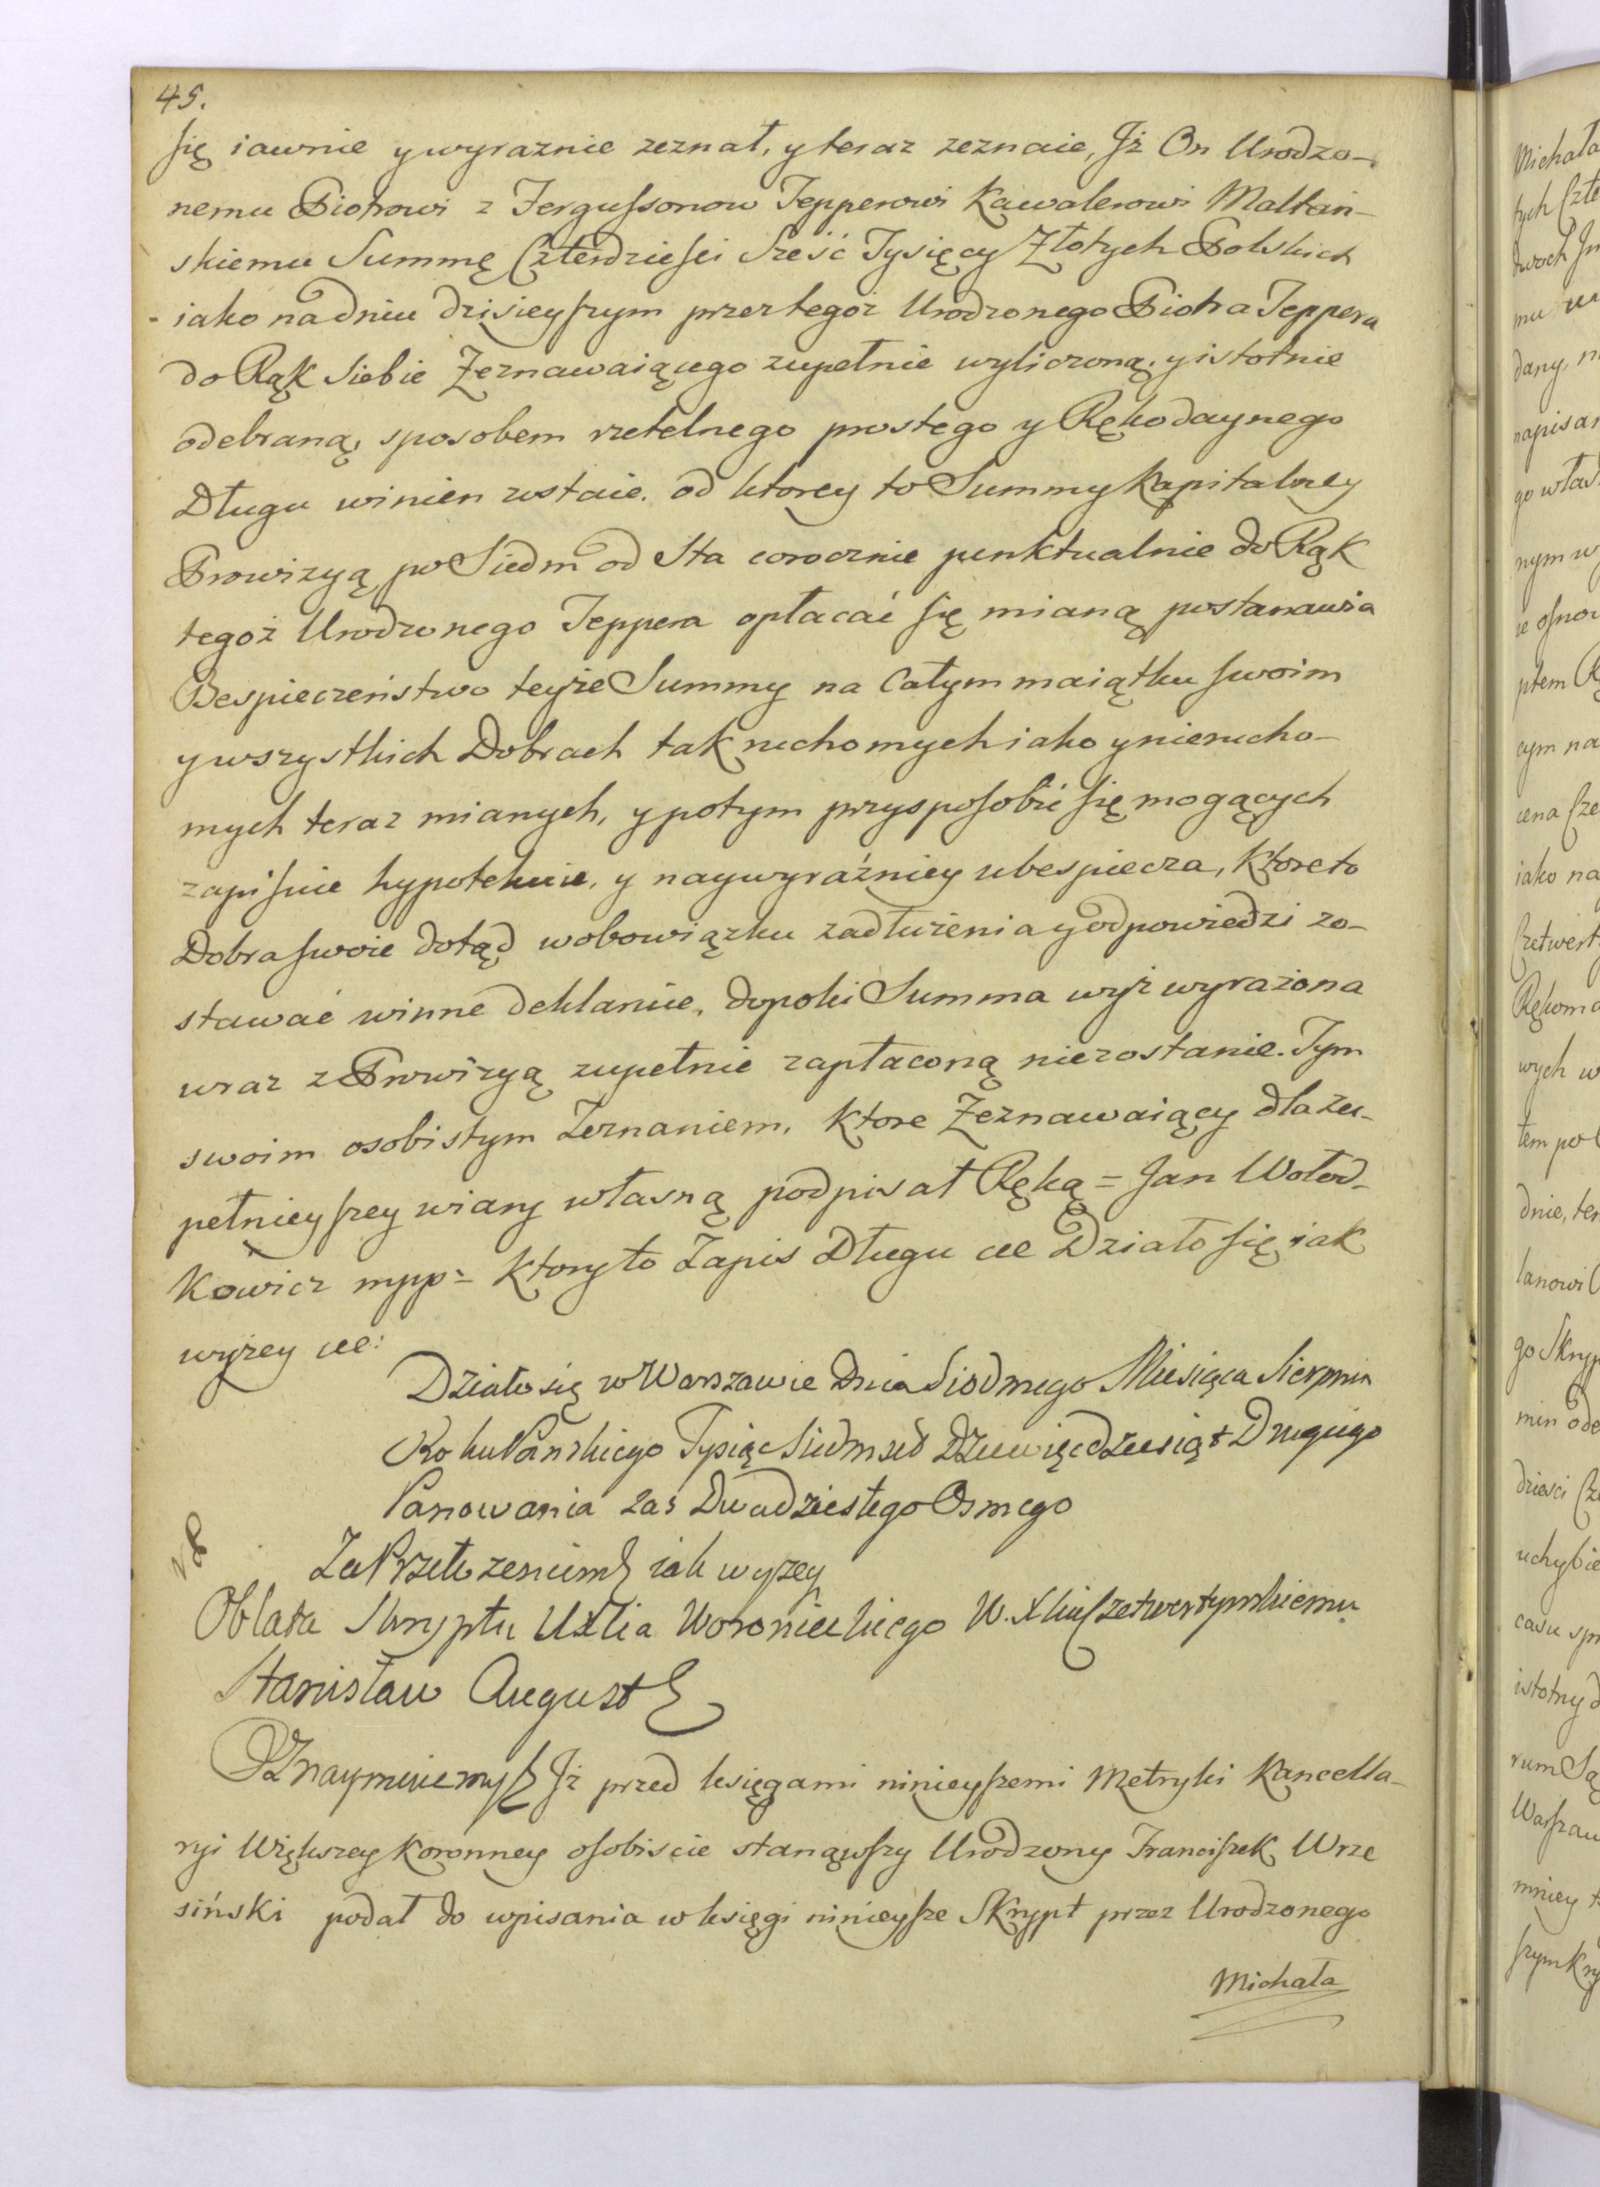 45.
się iawnie y wyraznie zeznał, y teraz zeznaie, Jż On Urodzo-
nemu Piotrowi z Fergussonow Tepperowi Kawalerowi Maltań-
skiemu Summę Czterdziesci Sześć Tysięcy Złotych Polskich
iako na dniu dzisieyszym przez tegoż Urodzonego Piotra Teppera
do Rąk Siebie Zeznawaiącego zupełnie wyliczoną, y istotnie
odebraną, sposobem rzetelnego prostego y Rękodaynego
Długu winien zostaie. od ktorey to Summy Kapitalney
Prowizyą po Siedm od Sta corocznie punktualnie do Rąk
tegoż Urodzonego Teppera opłacać się mianą postanawia
Bespieczeństwo teyże Summy na Całym maiątku swoim
y wszystkich Dobrach tak ruchomych iako y nierucho-
mych teraz mianych, y potym przysposobić się mogących
zapisuie hypotekuie, y naywyraźniey ubespiecza, Ktore to
Dobra swoie dotąd w obowiązku zadłużenia y odpowiedzi zo-
stawać winne deklaruie, dopoki Summa wyż wyrażona
wraz z Prowizyą zupełnie zapłaconą niezostanie. Tym
swoim osobistym Zeznaniem, Ktore Zeznawaiący dla zu-
pełnieyszey wiary własną podpisał Ręką = Jan Wołod-
Kowicz mpp = Ktory to Zapis Długu etc Działo się iak
wyżey etc:
Działo się w Warszawie Dnia Siodmego Miesiąca Sierpnia
Roku Pańskiego Tysiąc Siedmset Dziewięcdziesiąt Drugiego
Panowania zaś Dwudziestego Osmego
Za Przełożeniem iak wyżey
Oblata Skryptu Ur Woronieckiego W. Xciu Czetwertynskiemu
Stanisław August
Oznaymuiemy Jż przed księgami ninieyszemi Metryki Kancella-
ryi Większey Koronney osobiście stanąwszy Urodzony Franciszek Wrze
siński podał do wpisania w księgi ninieysze Skrypt przez Urodzonego
Michała